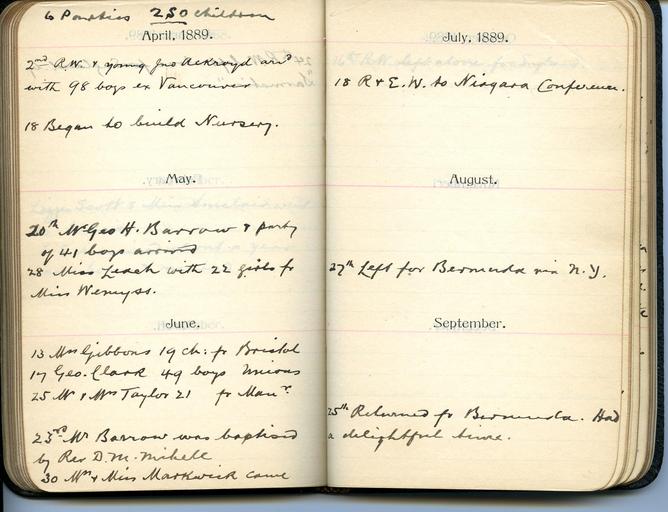 6 Parties 250 children
April, 1889.
2nd R.W. & young Jno Ackroyd arrd
with 98 boys ex Vancouver
18 Began to build Nursery.
May.
20th Mr Geo H. Barrow & party
of 41 boys arrived
28 Miss Leach with 22 girls fr
Miss Wemyss.
June.
13 Mrs Gibbons 19 ch: fr Bristol
17 Geo. Clark 49 boys Unions
25 Mr & Mrs Taylor 21 fr Manr
23rd Mr Barrow was baptised
by Rev D. M. Mihell
30 Mrs & Miss Markwick came
July, 1889.
18 R & E. W. to Niagara Conference.
August.
27th Left for Bermuda via N.Y.
September.
25th Returned fr Bermuda. Had
a delightful time.